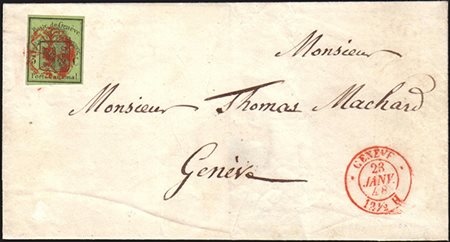 Poste de Genève
Port Cantonal
Monsieur
Monsieur Thomas Machard
Genève
GENÈVE
23
JANV
48